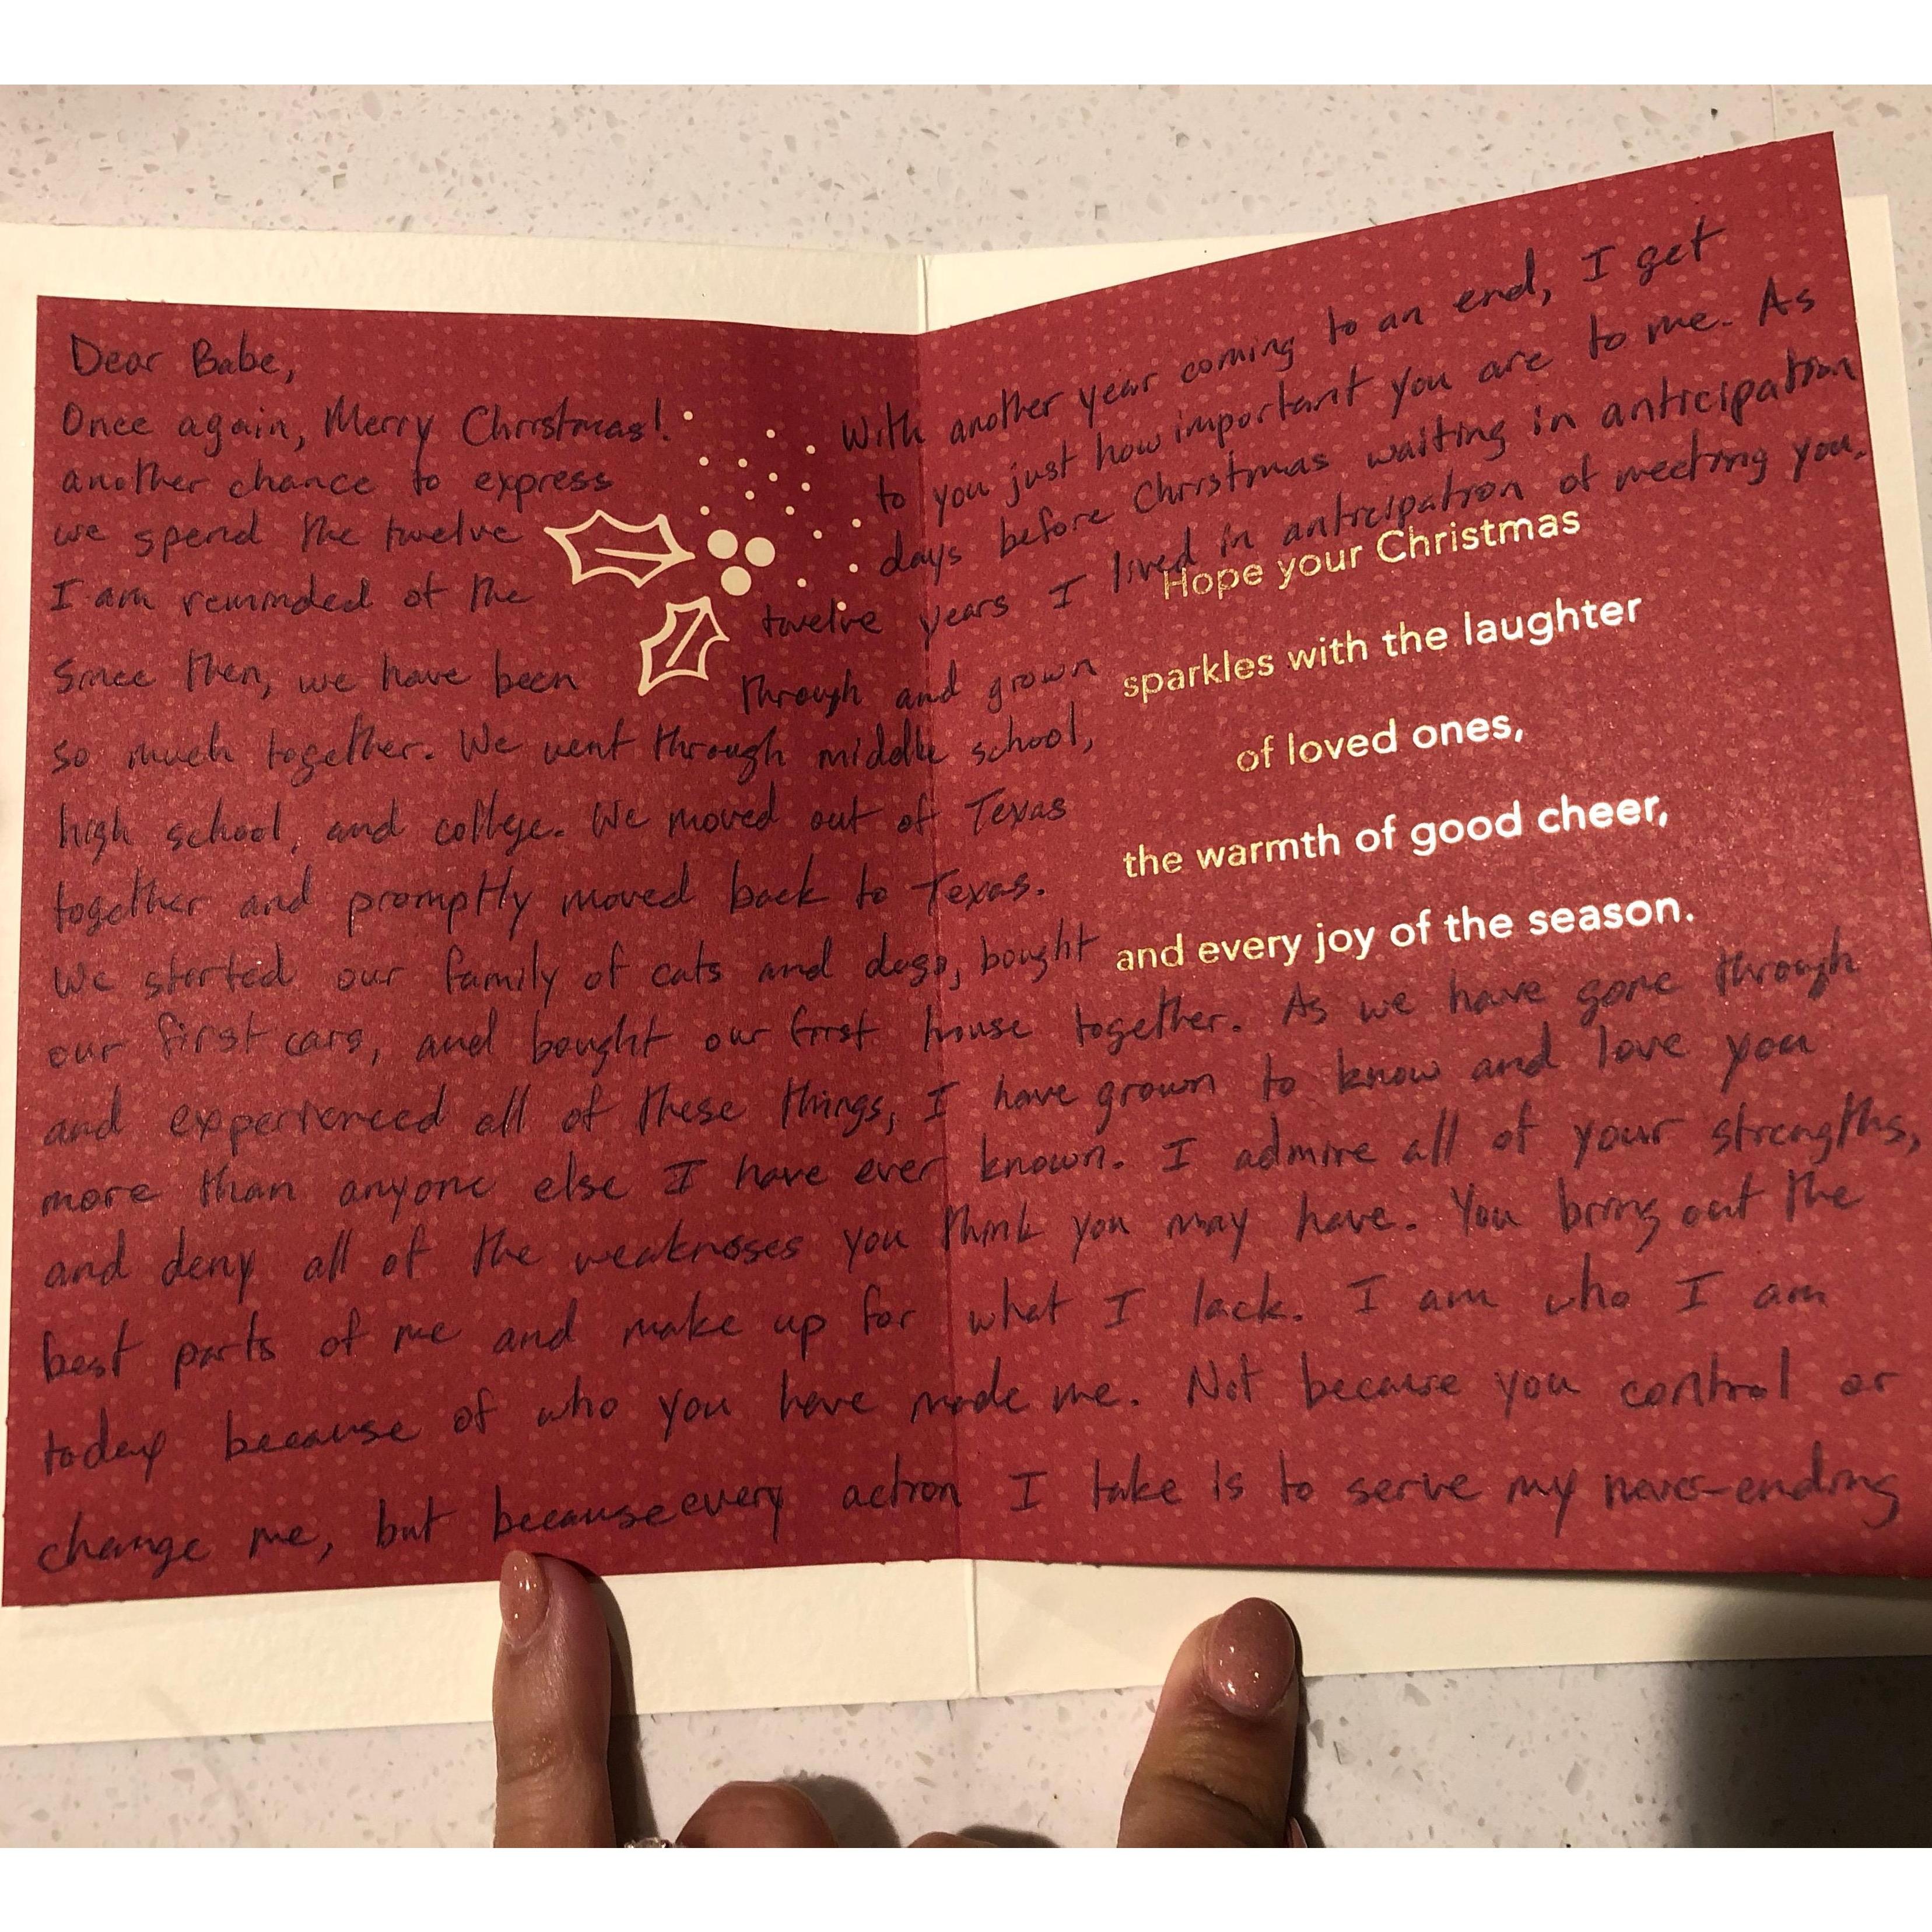 Dear Babe,
Once again, Merry Christmas! With another year coming to an end, I get
another chance to express to you just how important you are to me. As
we spend the twelve days before Christmas waiting in anticipation
I am reminded of the twelve years I lived in anticipation of meeting you.
Since then, we have been through and grown
so much together. We went through middle school,
high school, and college. We moved out of Texas
together and promptly moved back to Texas.
We started our family of cats and dogs, bought
our first cars, and bought our first house together. As we have gone through
and experienced all of these things, I have grown to know and love you
more than anyone else I have ever known. I admire all of your strengths,
and deny all of the weaknesses you think you may have. You bring out the
best parts of me and make up for what I lack. I am who I am
today because of who you have made me. Not because you control or
change me, but because every action I take is to serve my never-ending
Hope your Christmas
sparkles with the laughter
of loved ones,
the warmth of good cheer,
and every joy of the season.